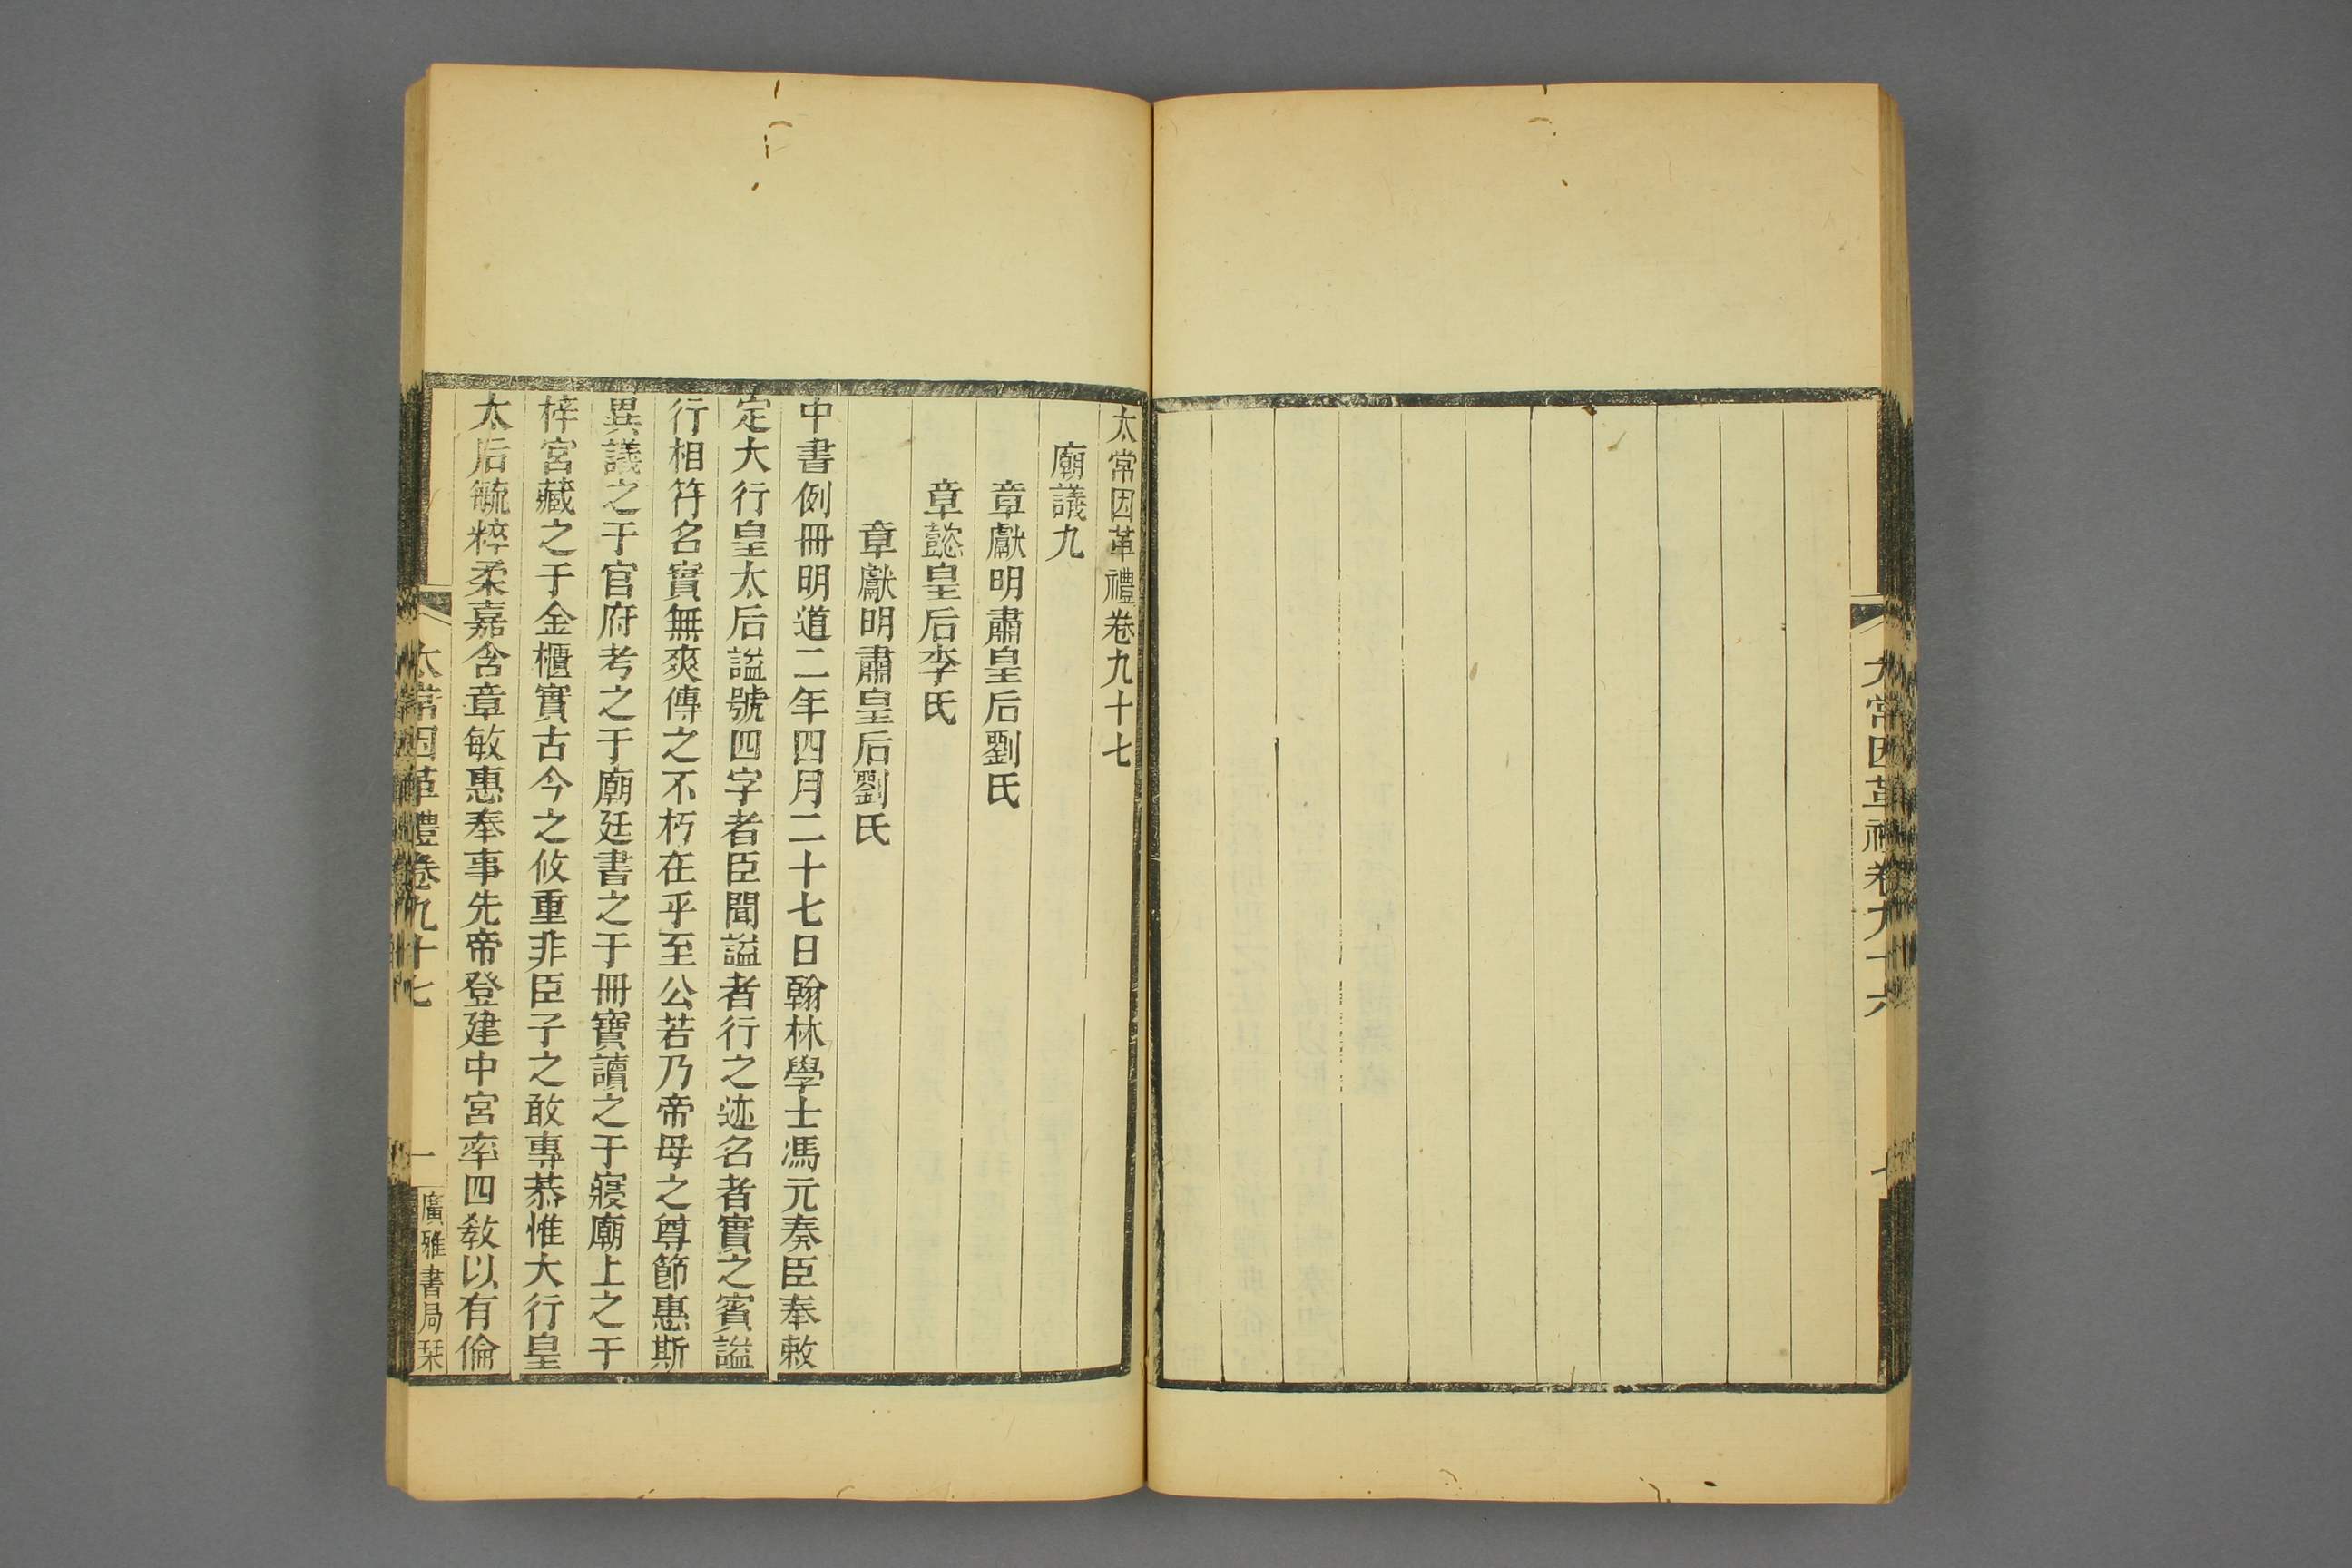 太常因革禮卷九十六
太常因革禮卷九十七
廟議九
章獻明肅皇后劉氏
章懿皇后李氏
章獻明肅皇后劉氏
中書例冊明道二年四月二十七日翰林學士馮元奏臣奉敕
定大行皇太后謚號四字者臣聞謚者行之迹名者實之賓謚
行相符名實無爽傳之不朽在乎至公若乃帝母之尊節惠斯
異議之于官府考之于廟廷書之于冊寶讀之于寢廟上之于
梓宮藏之于金櫃實古今之攸重非臣子之敢專恭惟大行皇
太后毓粹柔嘉含章敏惠奉事先帝登建中宮率四教以有倫
太常因革禮卷九十七
一
廣雅書局栞